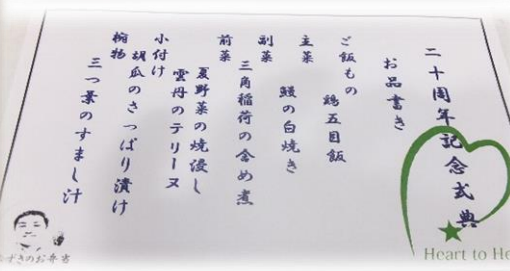 二十周年記念式典
お品書き
ご飯もの
鶏五目飯
主菜
鰻の白焼き
副菜
三角稲荷の含め煮
前菜
夏野菜の焼浸し
雲丹のテリーヌ
小付け
胡瓜のさっぱり漬け
椀物
三つ葉のすまし汁
ずきのお弁当
Heart to He